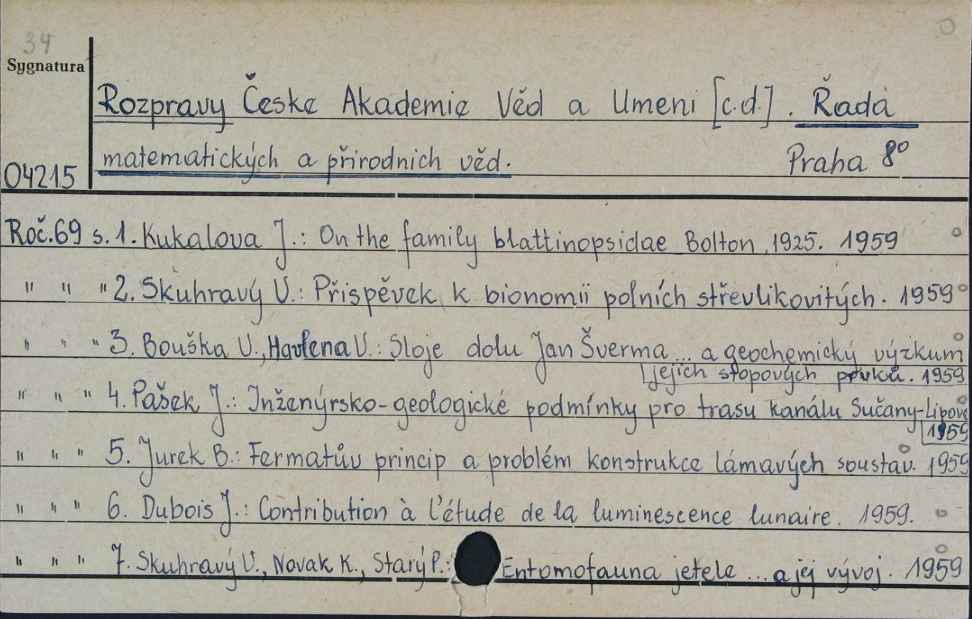 34
Sygnatura
Rozpravy České Akademie Věd a Umeni [c.d.]. Řada
matematických a přirodnich věd. Praha 8°
04215
Roč.69 s. 1. Kukalova J.: On the family blattinopsidae Bolton, 1925. 1959
" " " 2. Skuhravý V.: Přispěvek k bionomii polních střevlikovitých. 1959
" " " 3. Bouška V., Havlena V.: Sloje dolu Jan Šverma ... a geochemický výzkum
jejich stopových prvků. 1959
" " " 4. Pašek J.: Inženýrsko-geologické podmínky pro trasu kanálu Sučany-Lipovec
1959
" " " 5. Jurek B.: Fermatův princip a problém konstrukce lámavých soustav. 1959
" " " 6. Dubois J.: Contribution à l'étude de la luminescence lunaire. 1959.
" " " 7. Skuhravý V., Novak K., Starý P.: Entomofauna jetele ... a jej vývoj. 1959